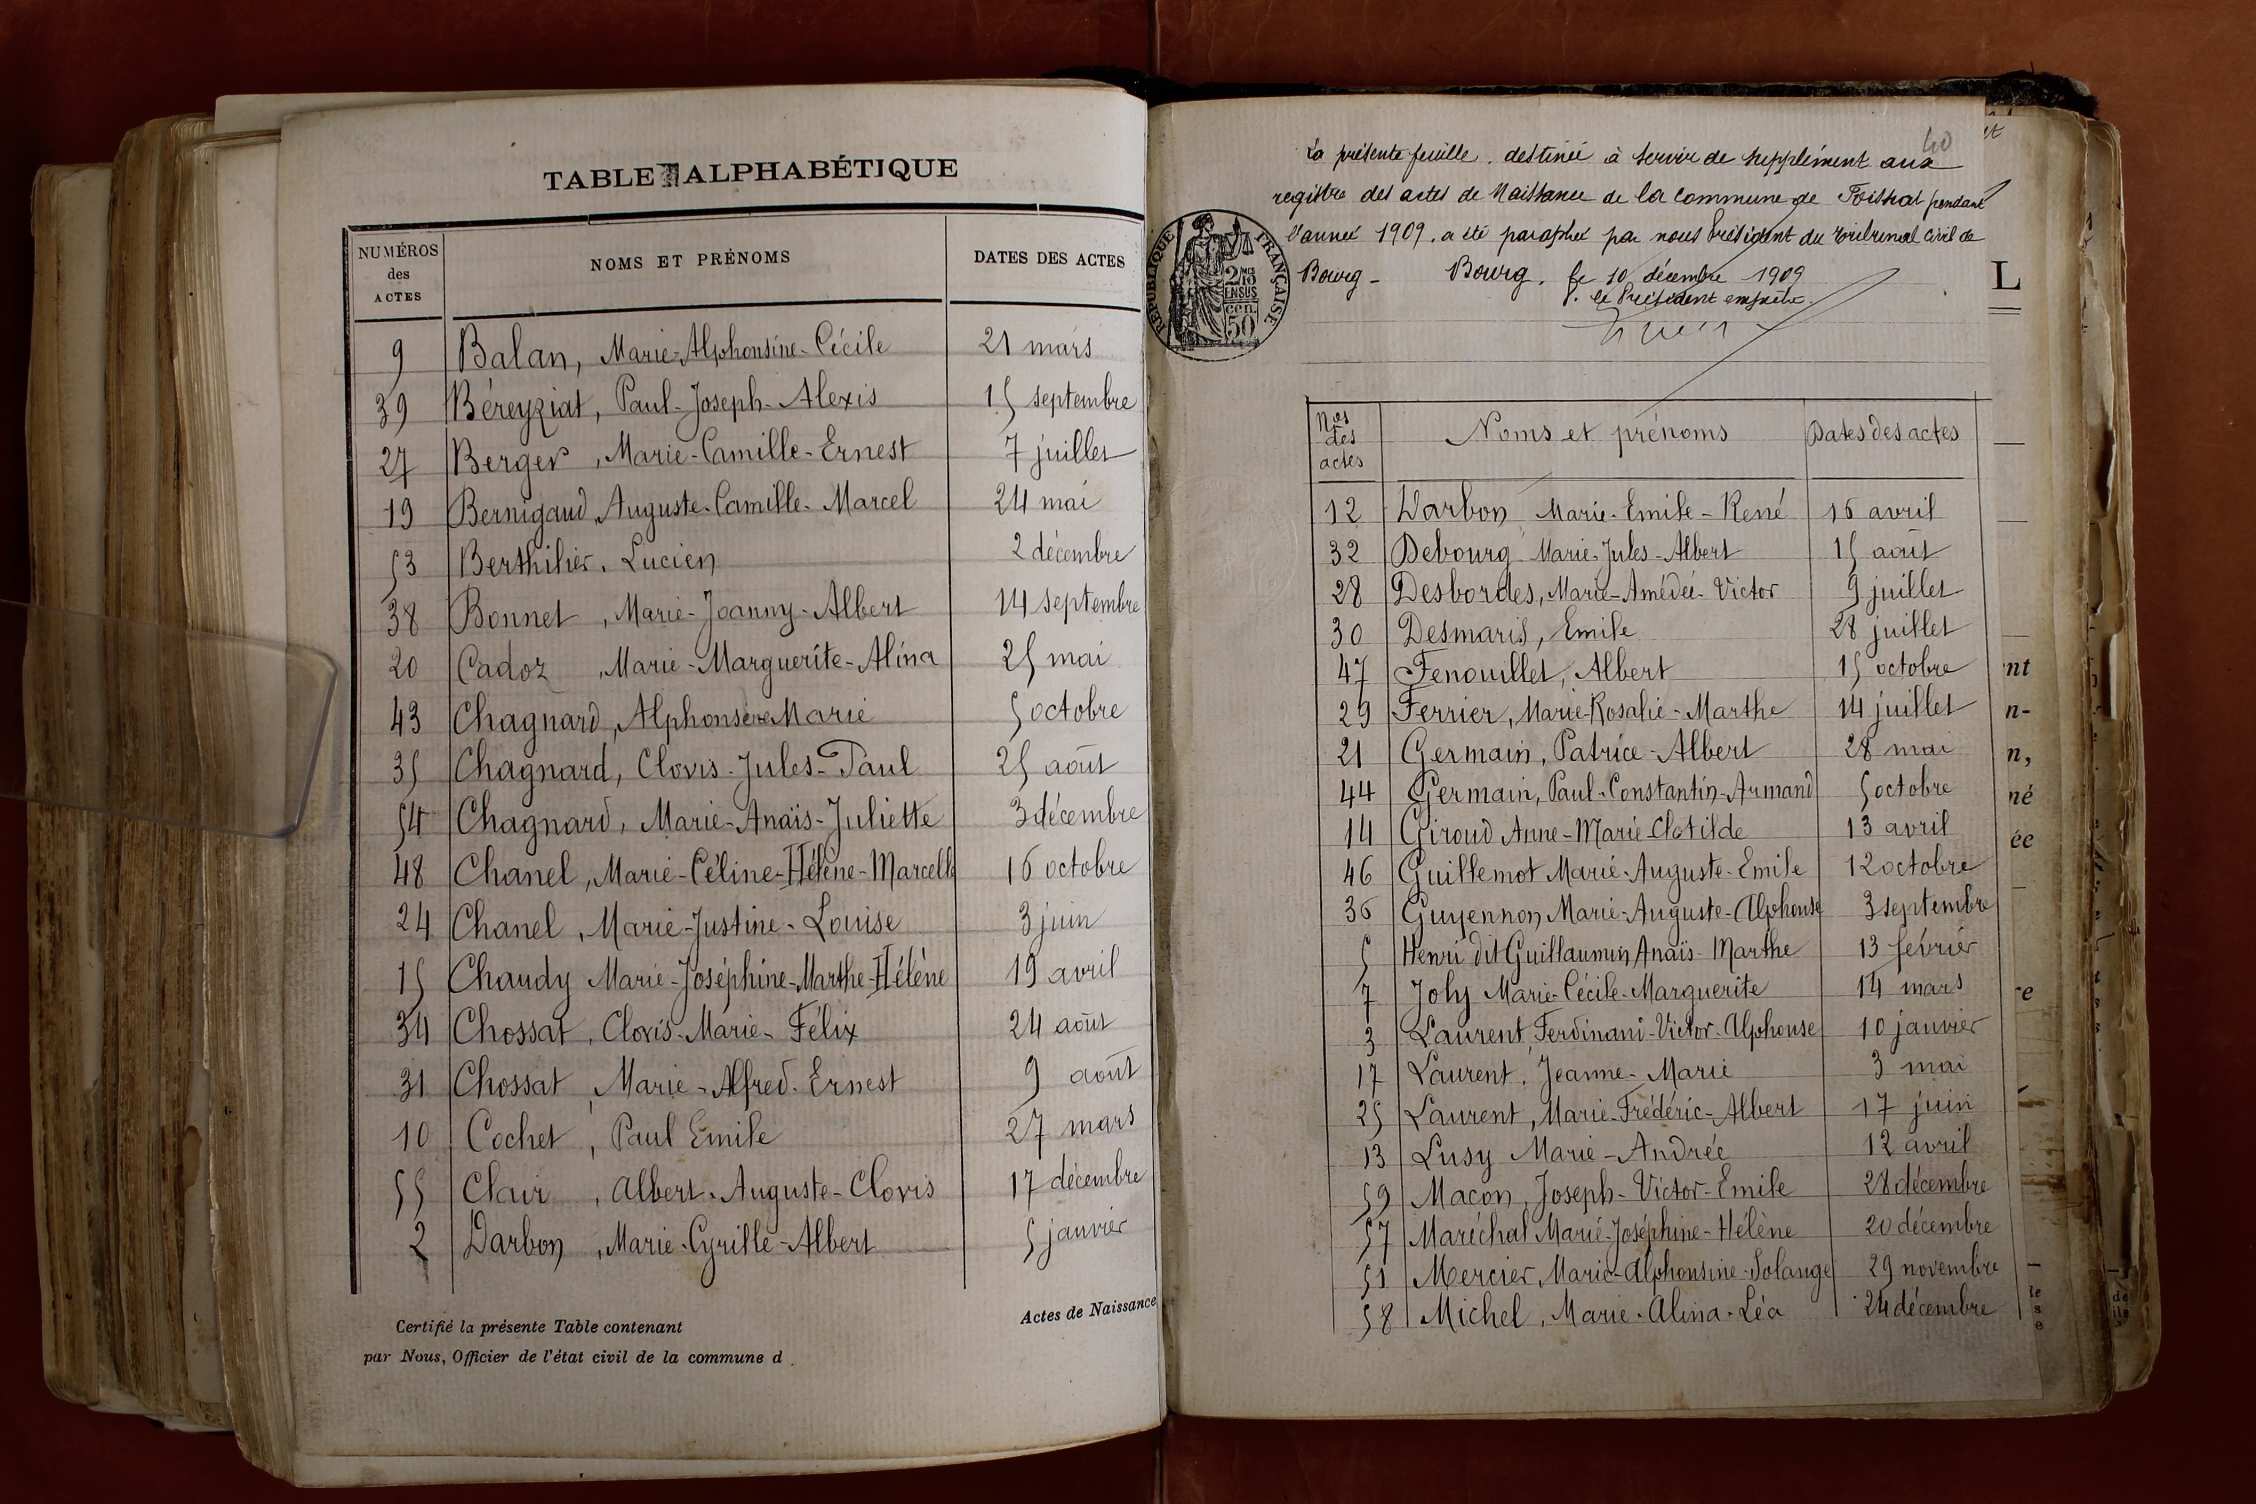 TABLE ALPHABÉTIQUE
NUMÉROS des ACTES NOMS ET PRÉNOMS DATES DES ACTES
9 Balan, Marie-Alphonsine-Cécile 21 mars
39 Béreyziat, Paul-Joseph-Alexis 15 septembre
27 Berger, Marie-Camille-Ernest 7 juillet
19 Bernigaud, Auguste-Camille-Marcel 24 mai
53 Berthilier, Lucien 2 décembre
38 Bonnet, Marie-Joanny-Albert 14 septembre
20 Cadoz, Marie-Marguerite-Alina 25 mai
43 Chagnard, Alphonse Marie 5 octobre
35 Chagnard, Clovis-Jules-Paul 25 août
54 Chagnard, Marie-Anaïs-Juliette 3 décembre
48 Chanel, Marie-Céline-Hélène-Marcelle 16 octobre
24 Chanel, Marie-Justine-Louise 3 juin
15 Chaudy Marie-Joséphine-Marthe-Hélène 19 avril
34 Chossat, Clovis-Marie-Félix 24 août
31 Chossat, Marie-Alfred-Ernest 9 août
10 Cochet, Paul Emile 27 mars
55 Clair, Albert-Auguste-Clovis 17 décembre
2 Darbon, Marie-Cyrille-Albert 5 janvier
Certifié la présente Table contenant Actes de Naissance
par Nous, Officier de l'état civil de la commune d
40
La présente feuille, destinée à servir de supplément aux
registre des actes de Naissance de la commune de Foissiat pendant
l'année 1909, a été paraphée par nous Président du tribunal civil de
Bourg - Bourg, le 10 décembre 1909
p. le Président empêché
RÉPUBLIQUE FRANÇAISE
50
Nos des actes Noms et prénoms Dates des actes
12 Darbon Marie-Emile-René 16 avril
32 Debourg Marie-Jules-Albert 15 août
28 Desbordes, Marie-Amédée-Victor 9 juillet
30 Desmaris, Emile 28 juillet
47 Fenouillet, Albert 15 octobre
29 Ferrier, Marie-Rosalie-Marthe 14 juillet
21 Germain, Patrice-Albert 28 mai
44 Germain, Paul-Constantin-Armand 5 octobre
14 Giroud Anne-Marie-Clotilde 13 avril
46 Guillemot Marie-Auguste-Emile 12 octobre
36 Guyennon Marie-Auguste-Alphonse 3 septembre
5 Henri dit Guillaumin Anaïs-Marthe 13 février
7 Joly Marie-Cécile-Marguerite 14 mars
3 Laurent, Ferdinand-Victor-Alphonse 10 janvier
17 Laurent, Jeanne-Marie 3 mai
25 Laurent, Marie-Frédéric-Albert 17 juin
13 Lusy Marie-Andrée 12 avril
59 Macon, Joseph-Victor-Emile 28 décembre
57 Maréchal Marie-Joséphine-Hélène 20 décembre
51 Mercier, Marie-Alphonsine-Solange 29 novembre
58 Michel, Marie-Alina-Léa 24 décembre
L
nt
n-
n,
né
ée